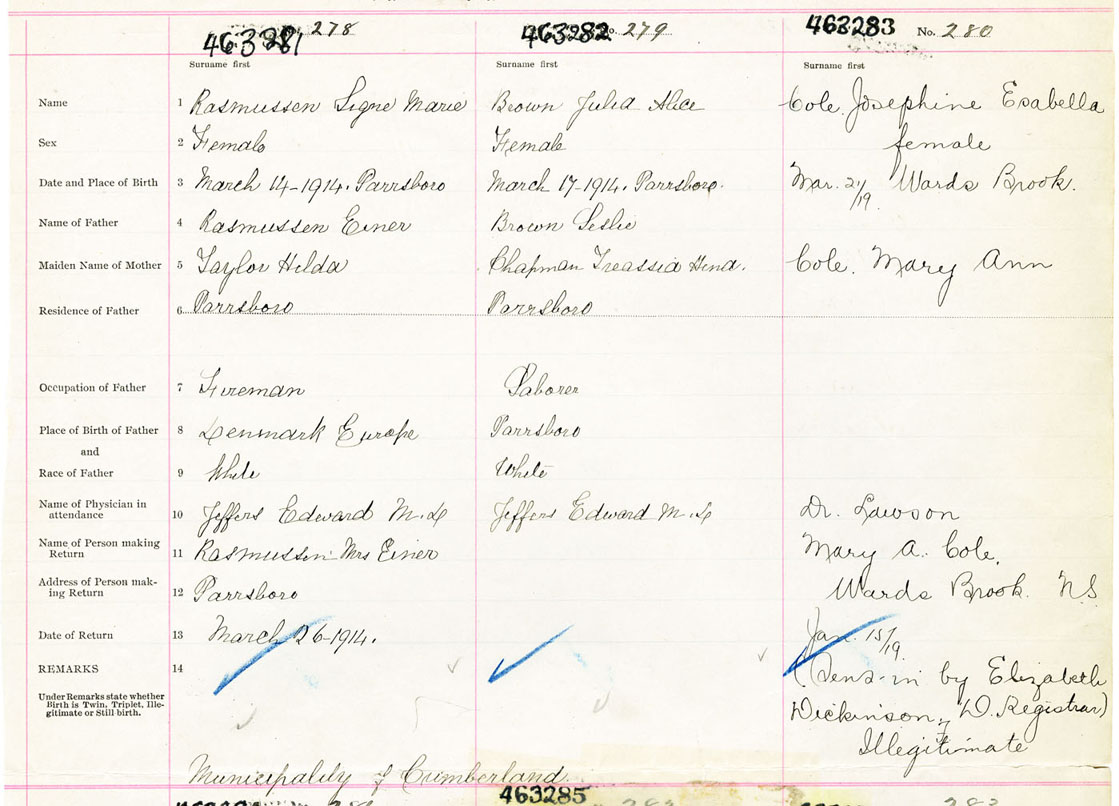 463281 278 463282 No. 279 463283 No. 280
Surname first Surname first Surname first
Name 1 Rasmussen Signe Marie Brown Julia Alice Cole, Josephine Esabella
Sex 2 Female Female female
Date and Place of Birth 3 March 14-1914. Parrsboro March 17-1914. Parrsboro. Mar. 21/19. Wards Brook.
Name of Father 4 Rasmussen Einer Brown Leslie
Maiden Name of Mother 5 Taylor Hilda Chapman Treassia Cole. Mary Ann
Residence of Father 6 Parrsboro Parrsboro
Occupation of Father 7 Fireman Laborer
Place of Birth of Father 8 Denmark Europe Parrsboro
and
Race of Father 9 White White
Name of Physician in
attendance 10 Jeffers Edward M.D Jeffers Edward M.D Dr. Lawson
Name of Person making
Return 11 Rasmussen Mrs Einer Mary A. Cole,
Address of Person mak-
ing Return 12 Parrsboro Wards Brook. N.S.
Date of Return 13 March 26-1914. Jan. 15/19.
REMARKS 14 (Sens-in by Elizabeth
Under Remarks state whether
Birth is Twin, Triplet, Ille-
gitimate or Still birth.
Dickinson, D. Registrar)
Illegitimate
Municipality of Cumberland
463285